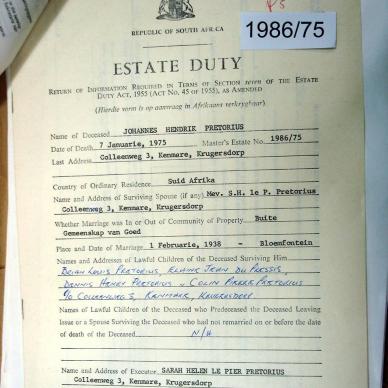 1986/75
REPUBLIC OF SOUTH AFRICA
ESTATE DUTY
RETURN OF INFORMATION REQUIRED IN TERMS OF SECTION seven OF THE ESTATE
DUTY ACT, 1955 (ACT No. 45 OF 1955), AS AMENDED
(Hierdie vorm is op aanvraag in Afrikaans verkrygbaar)
Name of Deceased JOHANNES HENDRIK PRETORIUS
Date of Death 7 Januarie, 1975 Master's Estate No. 1986/75
Last Address Colleenweg 3, Kenmare, Krugersdorp
Country of Ordinary Residence Suid Afrika
Name and Address of Surviving Spouse (if any) Mev. S.H. le P. Pretorius
Colleenweg 3, Kenmare, Krugersdorp
Whether Marriage was In or Out of Community of Property Buite
Gemeenskap van Goed
Place and Date of Marriage 1 Februarie, 1938 - Bloemfontein
Names and Addresses of Lawful Children of the Deceased Surviving Him
BRIAN LOUIS PRETORIUS, ELAINE JEAN DU PLESSIS,
DENNIS HENRY PRETORIUS & COLIN PIERRE PRETORIUS
c/o COLLEENWEG 3, KENMARE, KRUGERSDORP
Names of Lawful Children of the Deceased who Predeceased the Deceased Leaving
Issue or a Spouse Surviving the Deceased who had not remarried on or before the
date of death of the Deceased N/A
Name and Address of Executor SARAH HELEN LE PIER PRETORIUS
Colleenweg 3, Kenmare, Krugersdorp